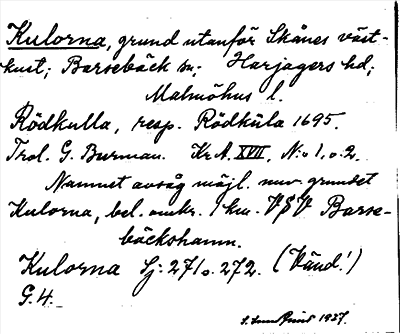 Kulorna, grund utanför Skånes väst-
kust; Barsebäck sn; Harjagers hd;
Malmöhus l.
Rödkulla, resp. Rödkůla 1695.
Trol. G. Burman. Kr.A. XVII, N:o 1, o. 2.
Namnet avsåg möjl. nuv. grundet
Kulorna, bel. omkr. 1 km. VSV Barse-
bäckshamn.
Kulorna Sj: 271 o. 272. (Vänd!)
G. 4.
1937.